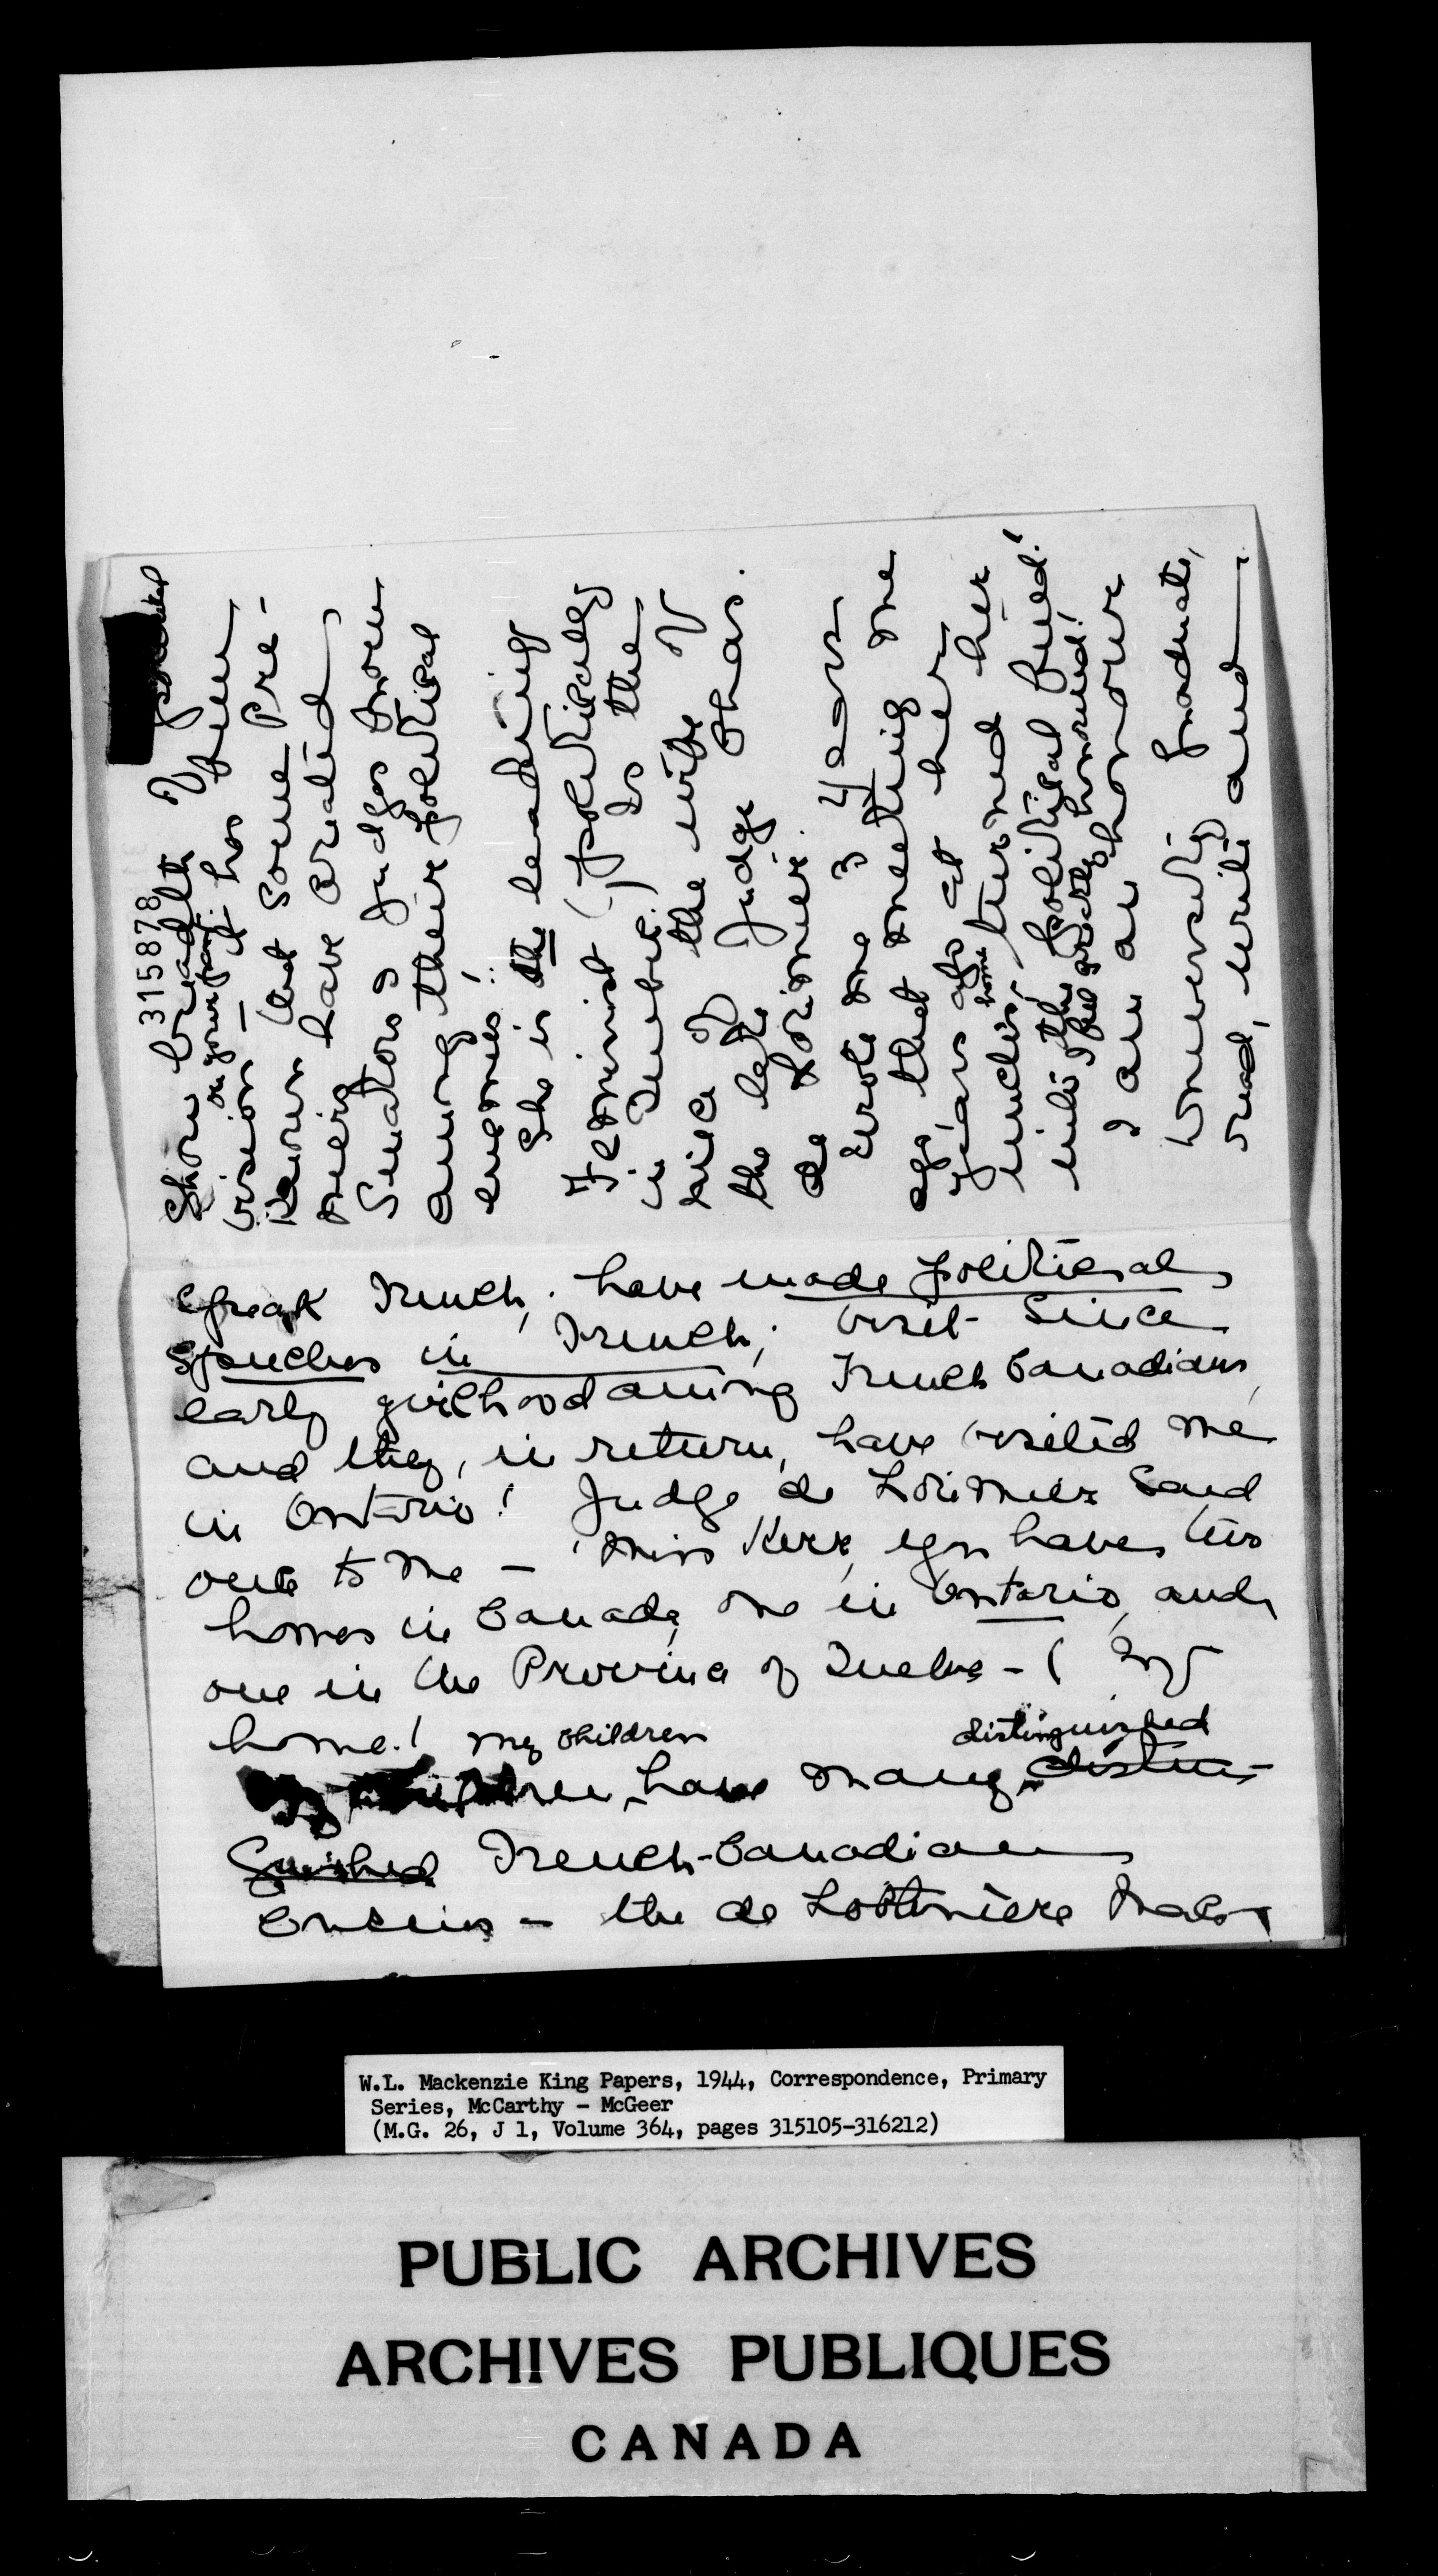 315878
show breadth of political
vision — it has been
on your part
known that some Pre-
miers have created
Senators & Judges from
among their political
enemies!
She is the leading
Feminist (politically
in Quebec.) Is the
niece of the wife of
the late Judge Chas.
de Lorimier.
wrote me 3 or 4 years
ago, that meeting me
years ago at her
uncle's home, turned her
into the political field!
I feel greatly honoured!
I am an honour
University graduate,
read, write and
speak French; have made political
speeches in French; visit since
early girlhood among French Canadians,
and they, in return, have visited me
in Ontario! Judge de Lorimier said
once to me — 'Miss Kerr, you have two
homes in Canada, one in Ontario, and
one in the Province of Quebec — (my
home! my children
distinguished
children have many distin-
guished French-Canadian
cousins — the de Lotbinière
W.L. Mackenzie King Papers, 1944, Correspondence, Primary
Series, McCarthy - McGeer
(M.G. 26, J 1, Volume 364, pages 315105-316212)
PUBLIC ARCHIVES
ARCHIVES PUBLIQUES
CANADA